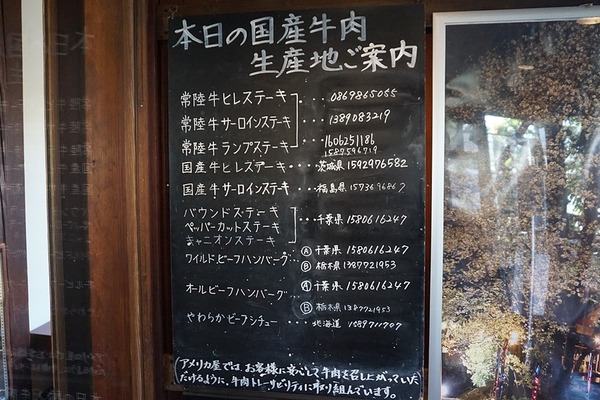 本日の国産牛肉
生産地ご案内
常陸牛ヒレステーキ ・・・ 0869865055
常陸牛サーロインステーキ ・・・ 1389083219
常陸牛ランプステーキ 1606251186
1587596719
国産牛ヒレステーキ・・・・茨城県 1592976582
国産牛サーロインステーキ ・・・福島県
パウンドステーキ
ペッパーカットステーキ ・・・千葉県 1580616247
キャニオンステーキ
ワイルドビーフハンバーグ・・ Ⓐ千葉県 1580616247
Ⓑ栃木県 1387721953
オールビーフハンバーグ・・ Ⓐ千葉県 1580616247
Ⓑ栃木県 1387721953
やわらかビーフシチュー・・・ 北海道
(アメリカ屋では、お客様に安心して牛肉を召し上がっていた
だけるように、牛肉トレーサビリティに取り組んでいます。)